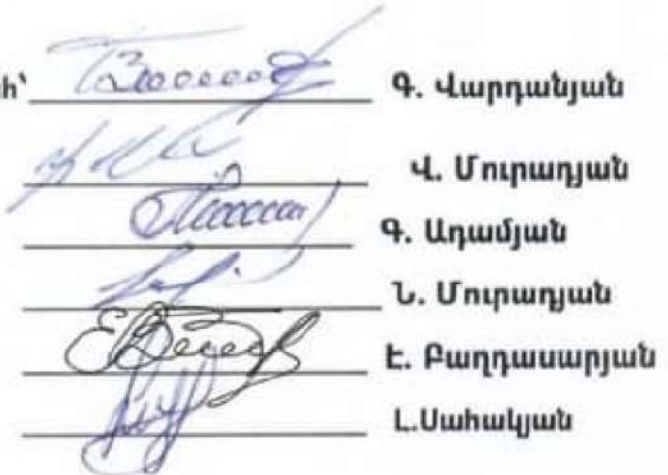 Գ. Վարդանյան
Վ. Մուրադյան
Գ. Ադամյան
Ն. Մուրադյան
Է. Բաղդասարյան
Լ.Սահակյան